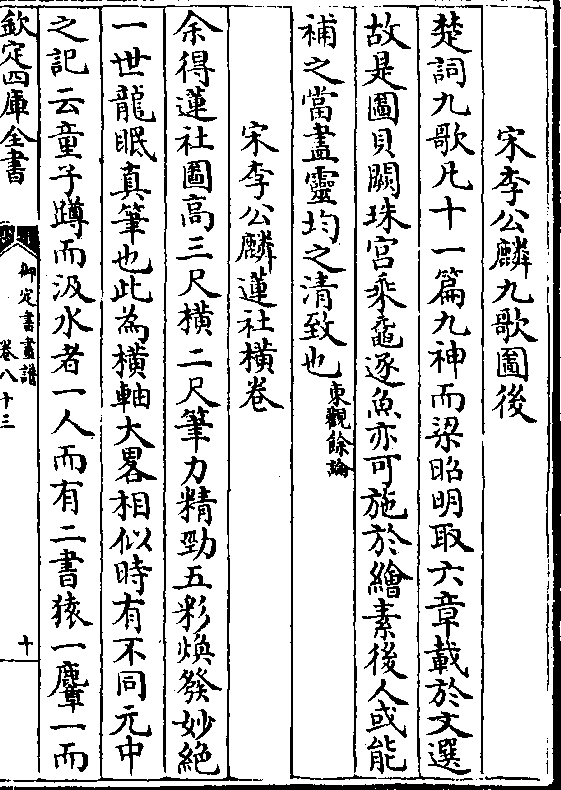 宋李公麟九歌圖後
楚詞九歌凡十一篇九神而梁昭明取六章載於文選
故是圖貝闕珠宮乘黿逐魚亦可施於繪素後人或能
補之當盡靈均之清致也東觀餘論
宋李公麟蓮社橫卷
余得蓮社圖高三尺橫二尺筆力精勁五彩煥發妙絕
一世龍眠真筆也此為橫軸大畧相似時有不同元中
之記云童子蹲而汲水者一人而有二書猿一麞一而
欽定四庫全書
御定書畫譜
卷八十三
十